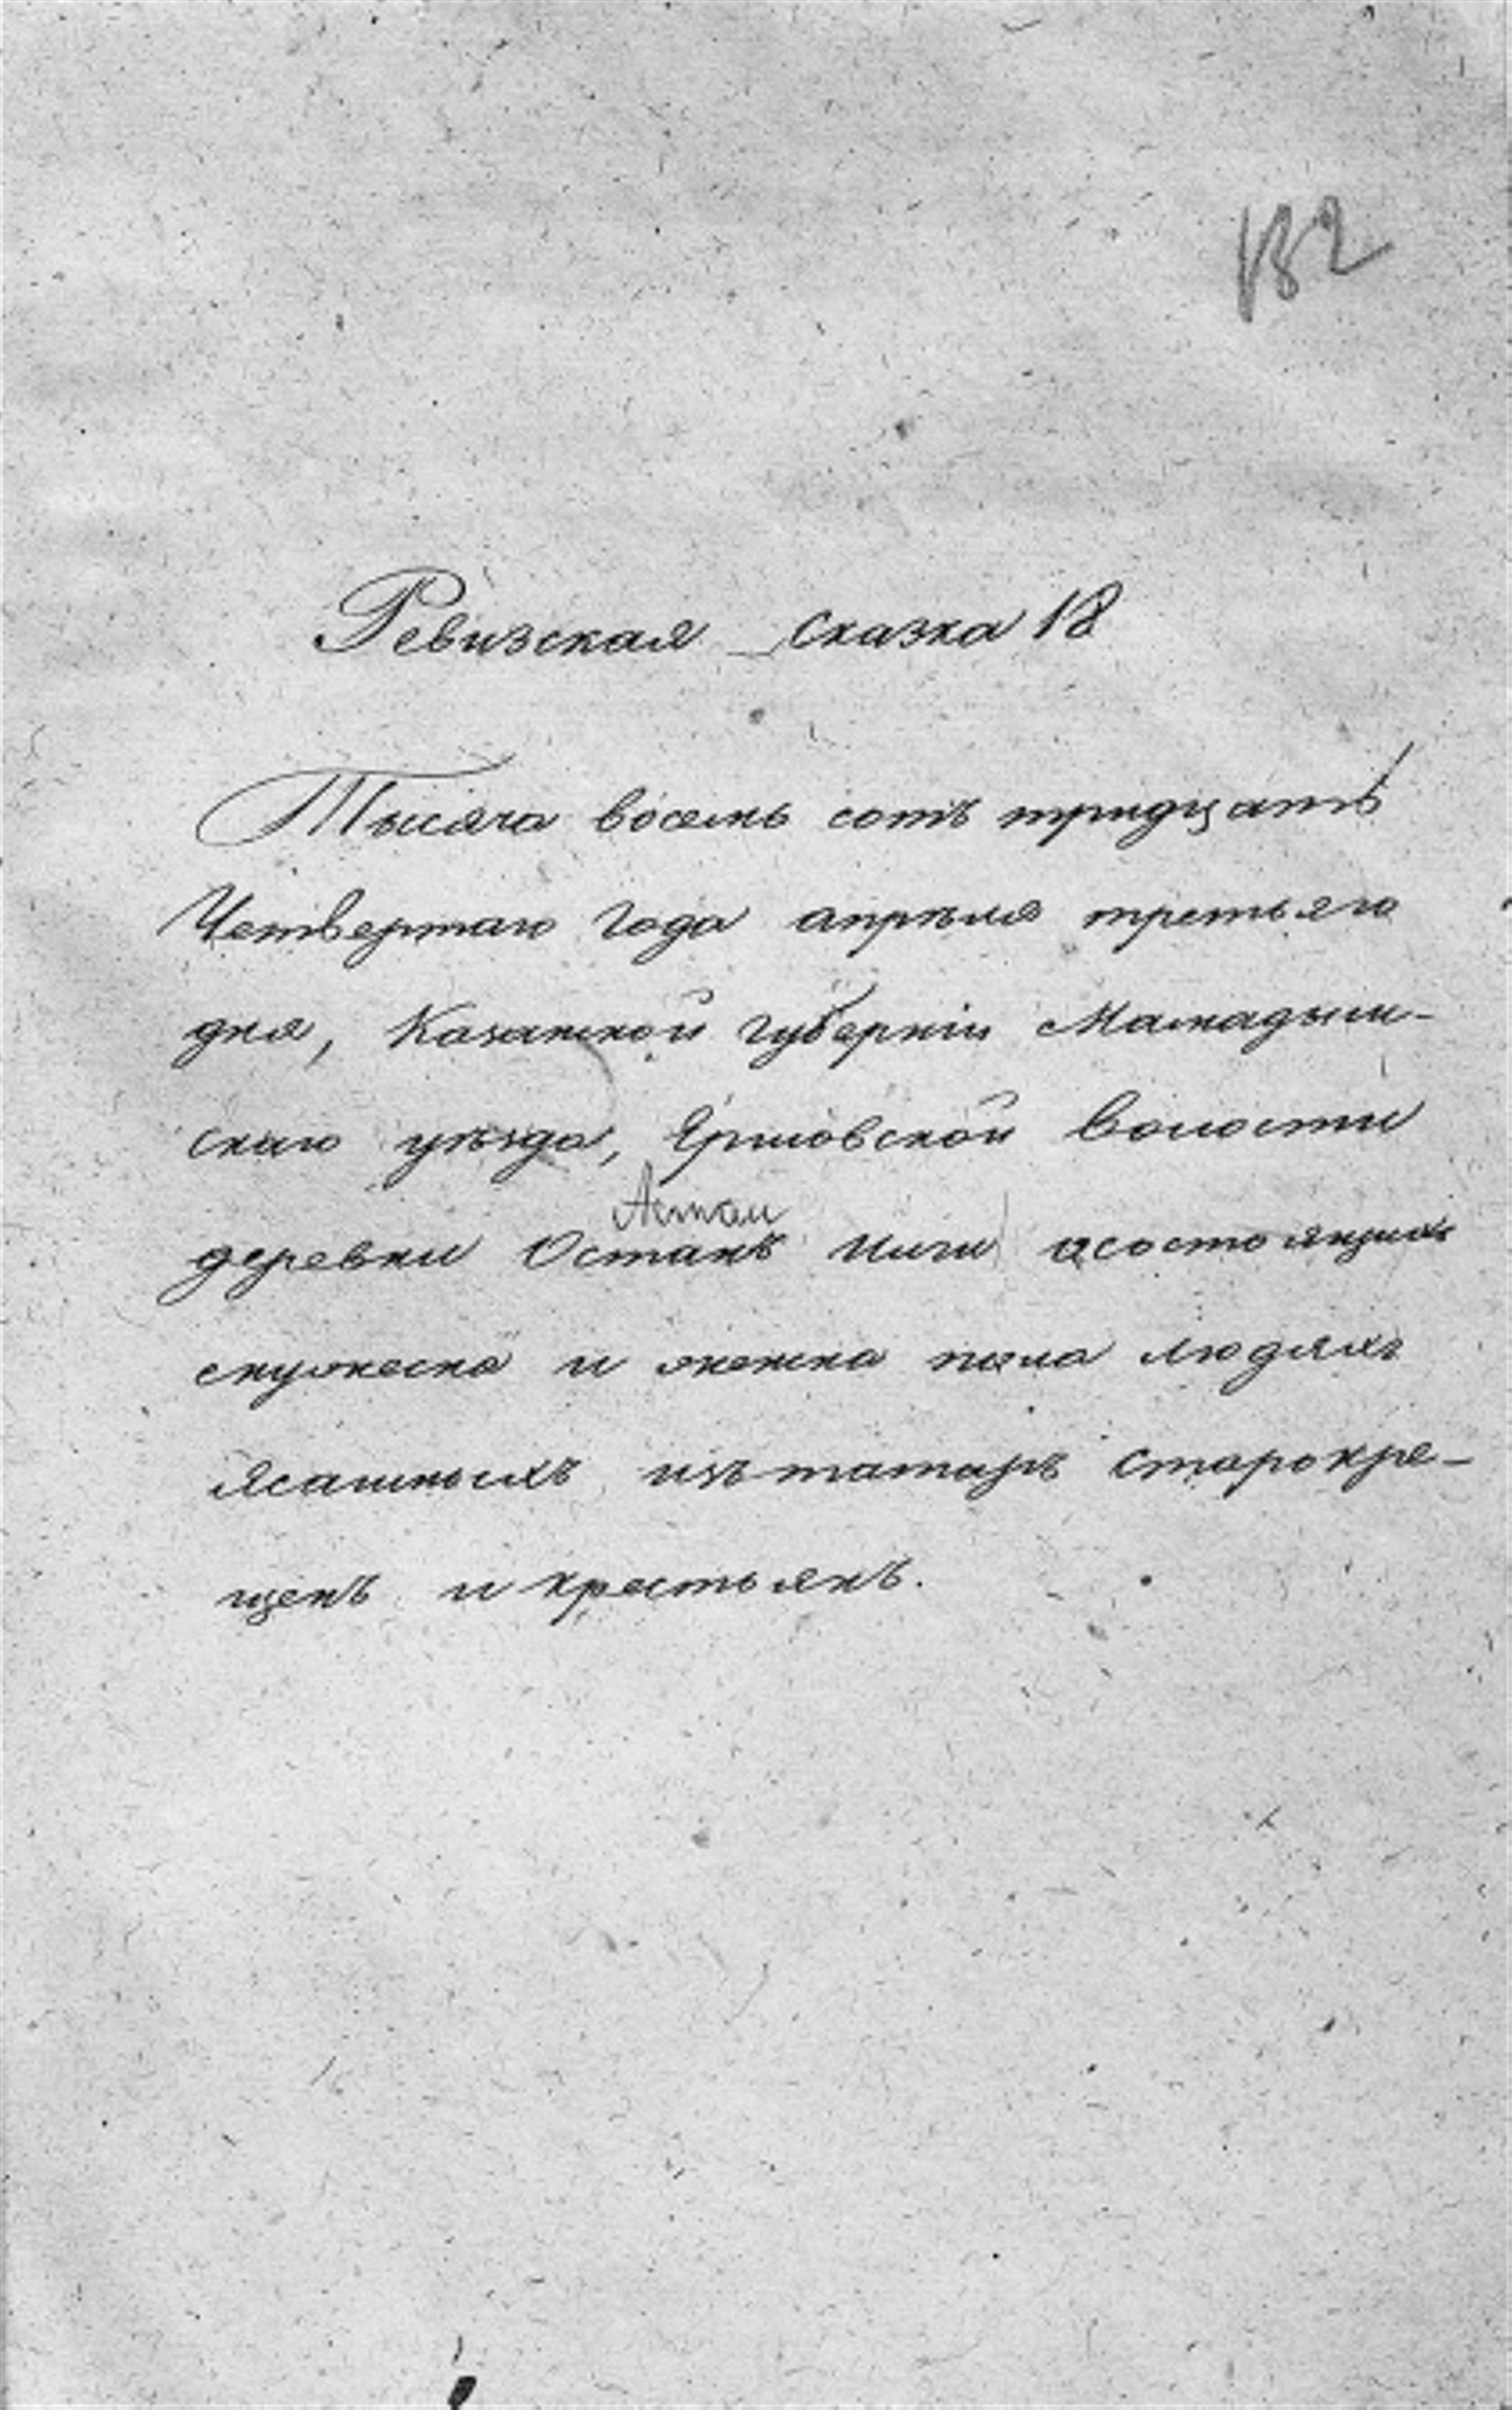 132
Ревизская сказка 18
Тысяча восемь сотъ тридцать
Четвертаго года апрѣля третьяго
дня, Казанской губерніи Мамадыш-
скаго уѣзда, Ершовской волости
Астан
деревни Останъ Чиги осостоящихъ
смужеска и женска пола людяхъ
Ясашныхъ изъ татаръ старокре-
щенъ и крестьянъ.